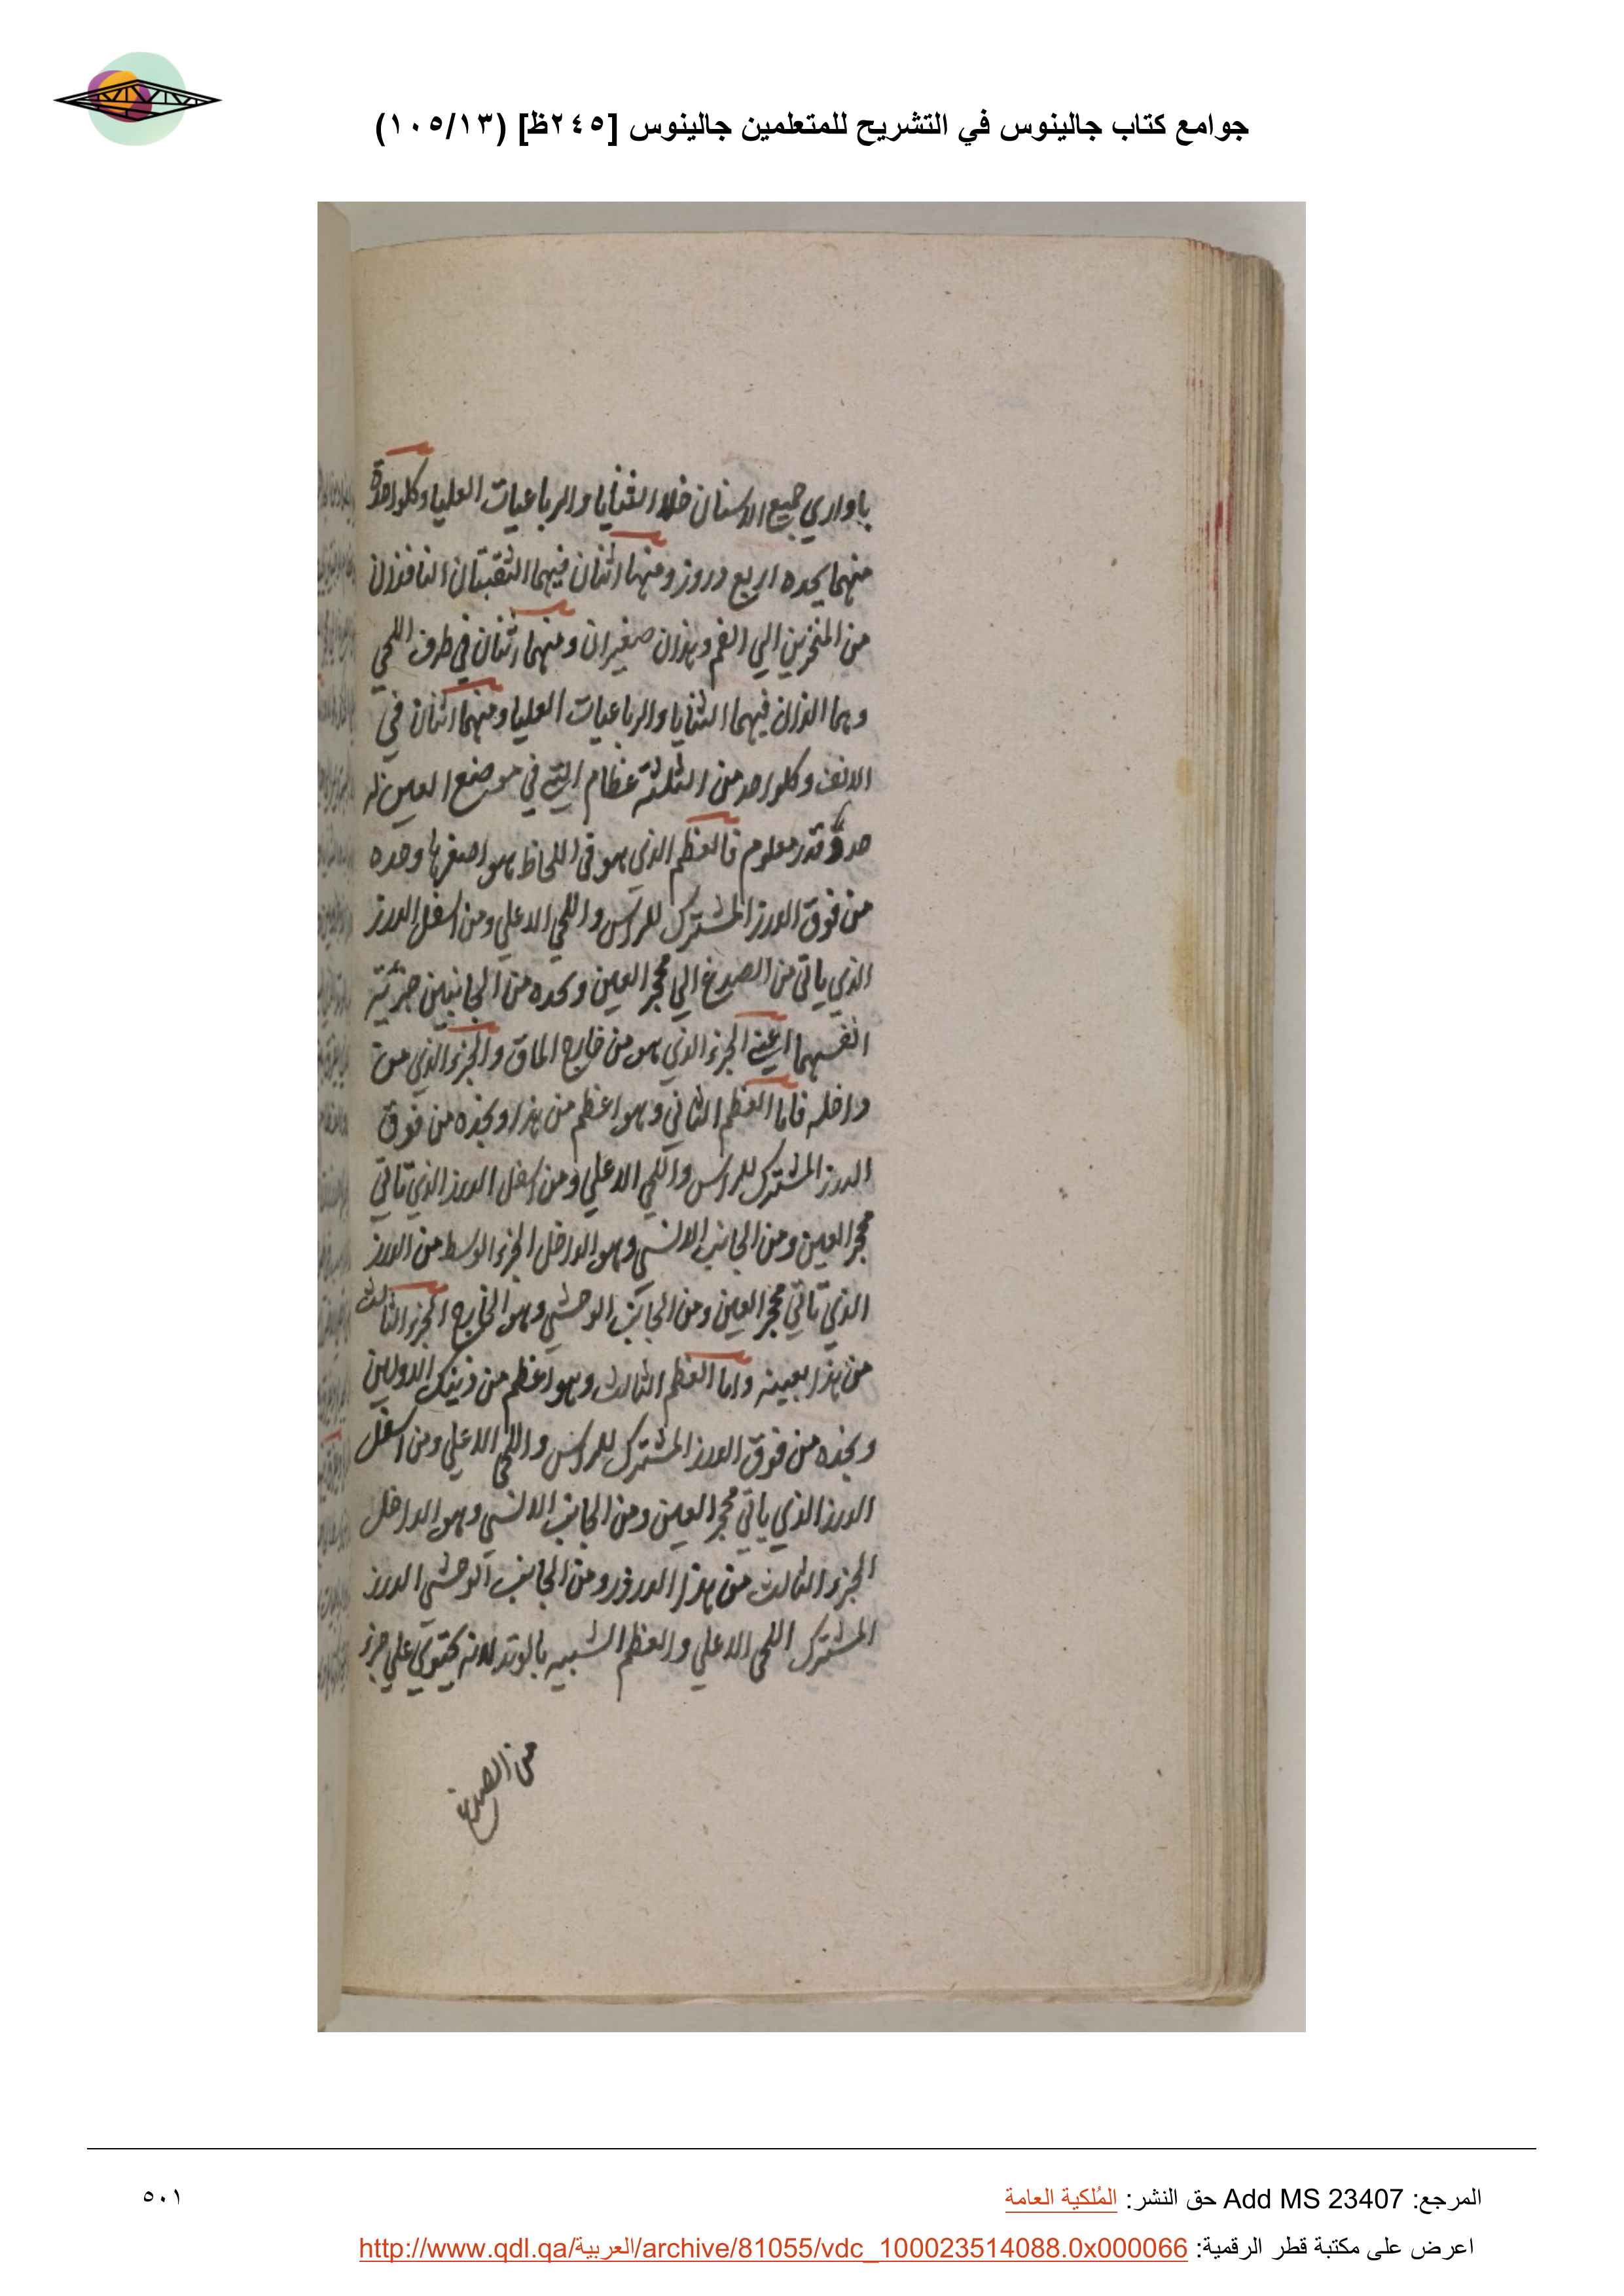 جوامع كتاب جالينوس في التشريح للمتعلمين جالينوس [٢٤٥ظ] (١٠٥/١٣)
باواري جميع الاسنان خلا الثنايا والرباعيات العليا وكلواحدة
منهما يحده اربع دروز ومنها اثنان فيهما الثقبتان النافذان
من المنخرين الي الفم وهذان صغيران ومنهما اثنان في طرف اللحي
وهما الذان فيهما الثنايا والرباعيات العليا ومنهما اثنان في
الانف وكلواحد من الثلثة عظام التي في موضع العين له
حد وقدر معلوم فالعظم الذي هو في اللحاظ هو اصغرها وحده
من فوق الدرز المشترك للراس واللحي الاعلي ومن اسفل الدرز
الذي ياتي من الصدغ الي محجر العين ويحده من الجانبين جزئيه
انفسهما اعني الجزء الذي هو من خارج الماق والجزء الذي من
داخله فاما العظم الثاني وهو اعظم من هذا ويحده من فوق
الدرز المشترك للراس واللحي الاعلي ومن اسفل الدرز الذي تاتي
محجر العين ومن الجانب الانسي وهو الداخل الجزء الوسط من الدرز
الذي تاتي محجر العين ومن الجانب الوحشي وهو الخارج الجزء الثالث
من هذا بعينه واما العظم الثالث وهو اعظم من ذينك الاولين
ويحده من فوق الدرز المشترك للراس واللحي الاعلي ومن اسفل
الدرز الذي ياتي محجر العين ومن الجانب الانسي وهو الداخل
الجزء الثالث من هذا الدرز ومن الجانب الوحشي الدرز
المشترك اللحي الاعلي والعظم الشبيه بالوتد لانه يحتوي علي جزء
من الصدغ
المرجع: Add MS 23407 حق النشر: المُلكية العامة
٥٠١
اعرض على مكتبة قطر الرقمية: http://www.qdl.qa/العربية/archive/81055/vdc_100023514088.0x000066